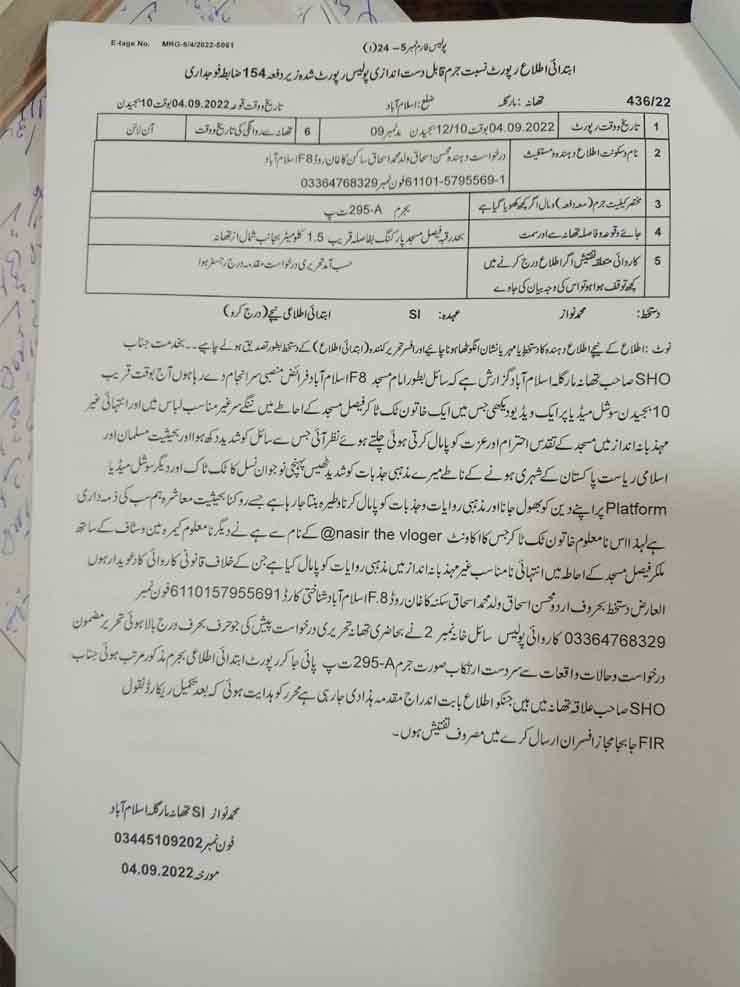 E-tage No. MRG-9/4/2022-5061
پولیس فارم نمبر 5–24 (i)
ابتدائی اطلاع رپورٹ نسبت جرم قابل دست اندازی پولیس رپورٹ شدہ زیر دفعہ 154 ضابطہ فوجداری
436/22 تھانہ: مارگلہ ضلع: اسلام آباد تاریخ و وقت وقوعہ 04.09.2022 بوقت 10 بجیدن
1 تاریخ و وقت رپورٹ 04.09.2022 بوقت 12/10 بجیدن مد نمبر 09 6 تھانہ سے روانگی کی تاریخ و وقت آن لائن
2 نام و سکونت اطلاع دہندہ و مستغیث درخواست دہندہ محسن اسحاق ولد محمد اسحاق ساکن کاغان روڈ F8 اسلام آباد
61101-5795569-1 فون نمبر 03364768329
3 مختصر کیفیت جرم (معہ دفعہ) و مال اگر کچھ کھویا گیا ہے بجرم 295-A ت پ
4 جائے وقوعہ و فاصلہ تھانہ سے اور سمت بحد رقبہ فیصل مسجد پارکنگ بفاصلہ قریب 1.5 کلومیٹر بجانب شمال از تھانہ
5 کاروائی متعلقہ تفتیش اگر اطلاع درج کرنے میں حسب آمد تحریری درخواست مقدمہ درج رجسٹر ہوا
کچھ توقف ہوا ہو تو اس کی وجہ بیان کی جاوے
دستخط: محمد نواز عہدہ: SI ابتدائی اطلاعی نیچے (درج کرو)
نوٹ: اطلاع کے نیچے اطلاع دہندہ کا دستخط یا مہر یا نشان انگوٹھا ہونا چاہئے اور افسر تحریر کنندہ (ابتدائی اطلاع) کے دستخط بطور تصدیق ہونے چاہیے۔۔ بخدمت جناب
SHO صاحب تھانہ مارگلہ اسلام آباد گزارش ہے کہ سائل بطور امام مسجد F8 اسلام آباد فرائض منصبی سرانجام دے رہا ہوں آج بوقت قریب
10 بجیدن سوشل میڈیا پر ایک ویڈیو دیکھی جس میں ایک خاتون ٹک ٹاکر فیصل مسجد کے احاطے میں ننگے سر غیر مناسب لباس میں اور انتہائی غیر
مہذبانہ انداز میں مسجد کے تقدس احترام اور عزت کو پامال کرتی ہوئی چلتے ہوئے نظر آئی جس سے سائل کو شدید دکھ ہوا اور بحیثیت مسلمان اور
اسلامی ریاست پاکستان کے شہری ہونے کے ناطے میرے مذہبی جذبات کو شدید ٹھیس پہنچی نوجوان نسل کا ٹک ٹاک اور دیگر سوشل میڈیا
Platform پر اپنے دین کو بھول جانا اور مذہبی روایات و جذبات کو پامال کرنا وطیرہ بنتا جا رہا ہے جسے روکنا بحیثیت معاشرہ ہم سب کی ذمہ داری
ہے لہذا اس نامعلوم خاتون ٹک ٹاکر جس کا اکاونٹ @nasir the vloger کے نام سے ہے نے دیگر نامعلوم کیمرہ مین و سٹاف کے ساتھ
ملکر فیصل مسجد کے احاطہ میں انتہائی نا مناسب غیر مہذبانہ انداز میں مذہبی روایات کو پامال کیا ہے جن کے خلاف قانونی کاروائی کا دعویدار ہوں
العارض دستخط بحروف اردو محسن اسحاق ولد محمد اسحاق سکنہ کاغان روڈ F.8 اسلام آباد شناختی کارڈ 6110157955691 فون نمبر
03364768329 کاروائی پولیس سائل خانہ نمبر 2 نے بحاضری تھانہ تحریری درخواست پیش کی جو حرف بحرف درج بالا ہوئی تحریر مضمون
درخواست و حالات واقعات سے سر دست ارتکاب صورت جرم 295-A ت پ پائی جا کر رپورٹ ابتدائی اطلاعی بجرم مذکور مرتب ہوئی جناب
SHO صاحب علاقہ تھانہ میں ہیں جنکو اطلاع بابت اندراج مقدمہ ہذا دی جارہی ہے محرر کو ہدایت ہوئی کہ بعد تکمیل ریکارڈ نقول
FIR جا بجا مجاز افسران ارسال کرے میں مصروف تفتیش ہوں۔
محمد نواز SI تھانہ مارگلہ اسلام آباد
فون نمبر 03445109202
مورخہ 04.09.2022